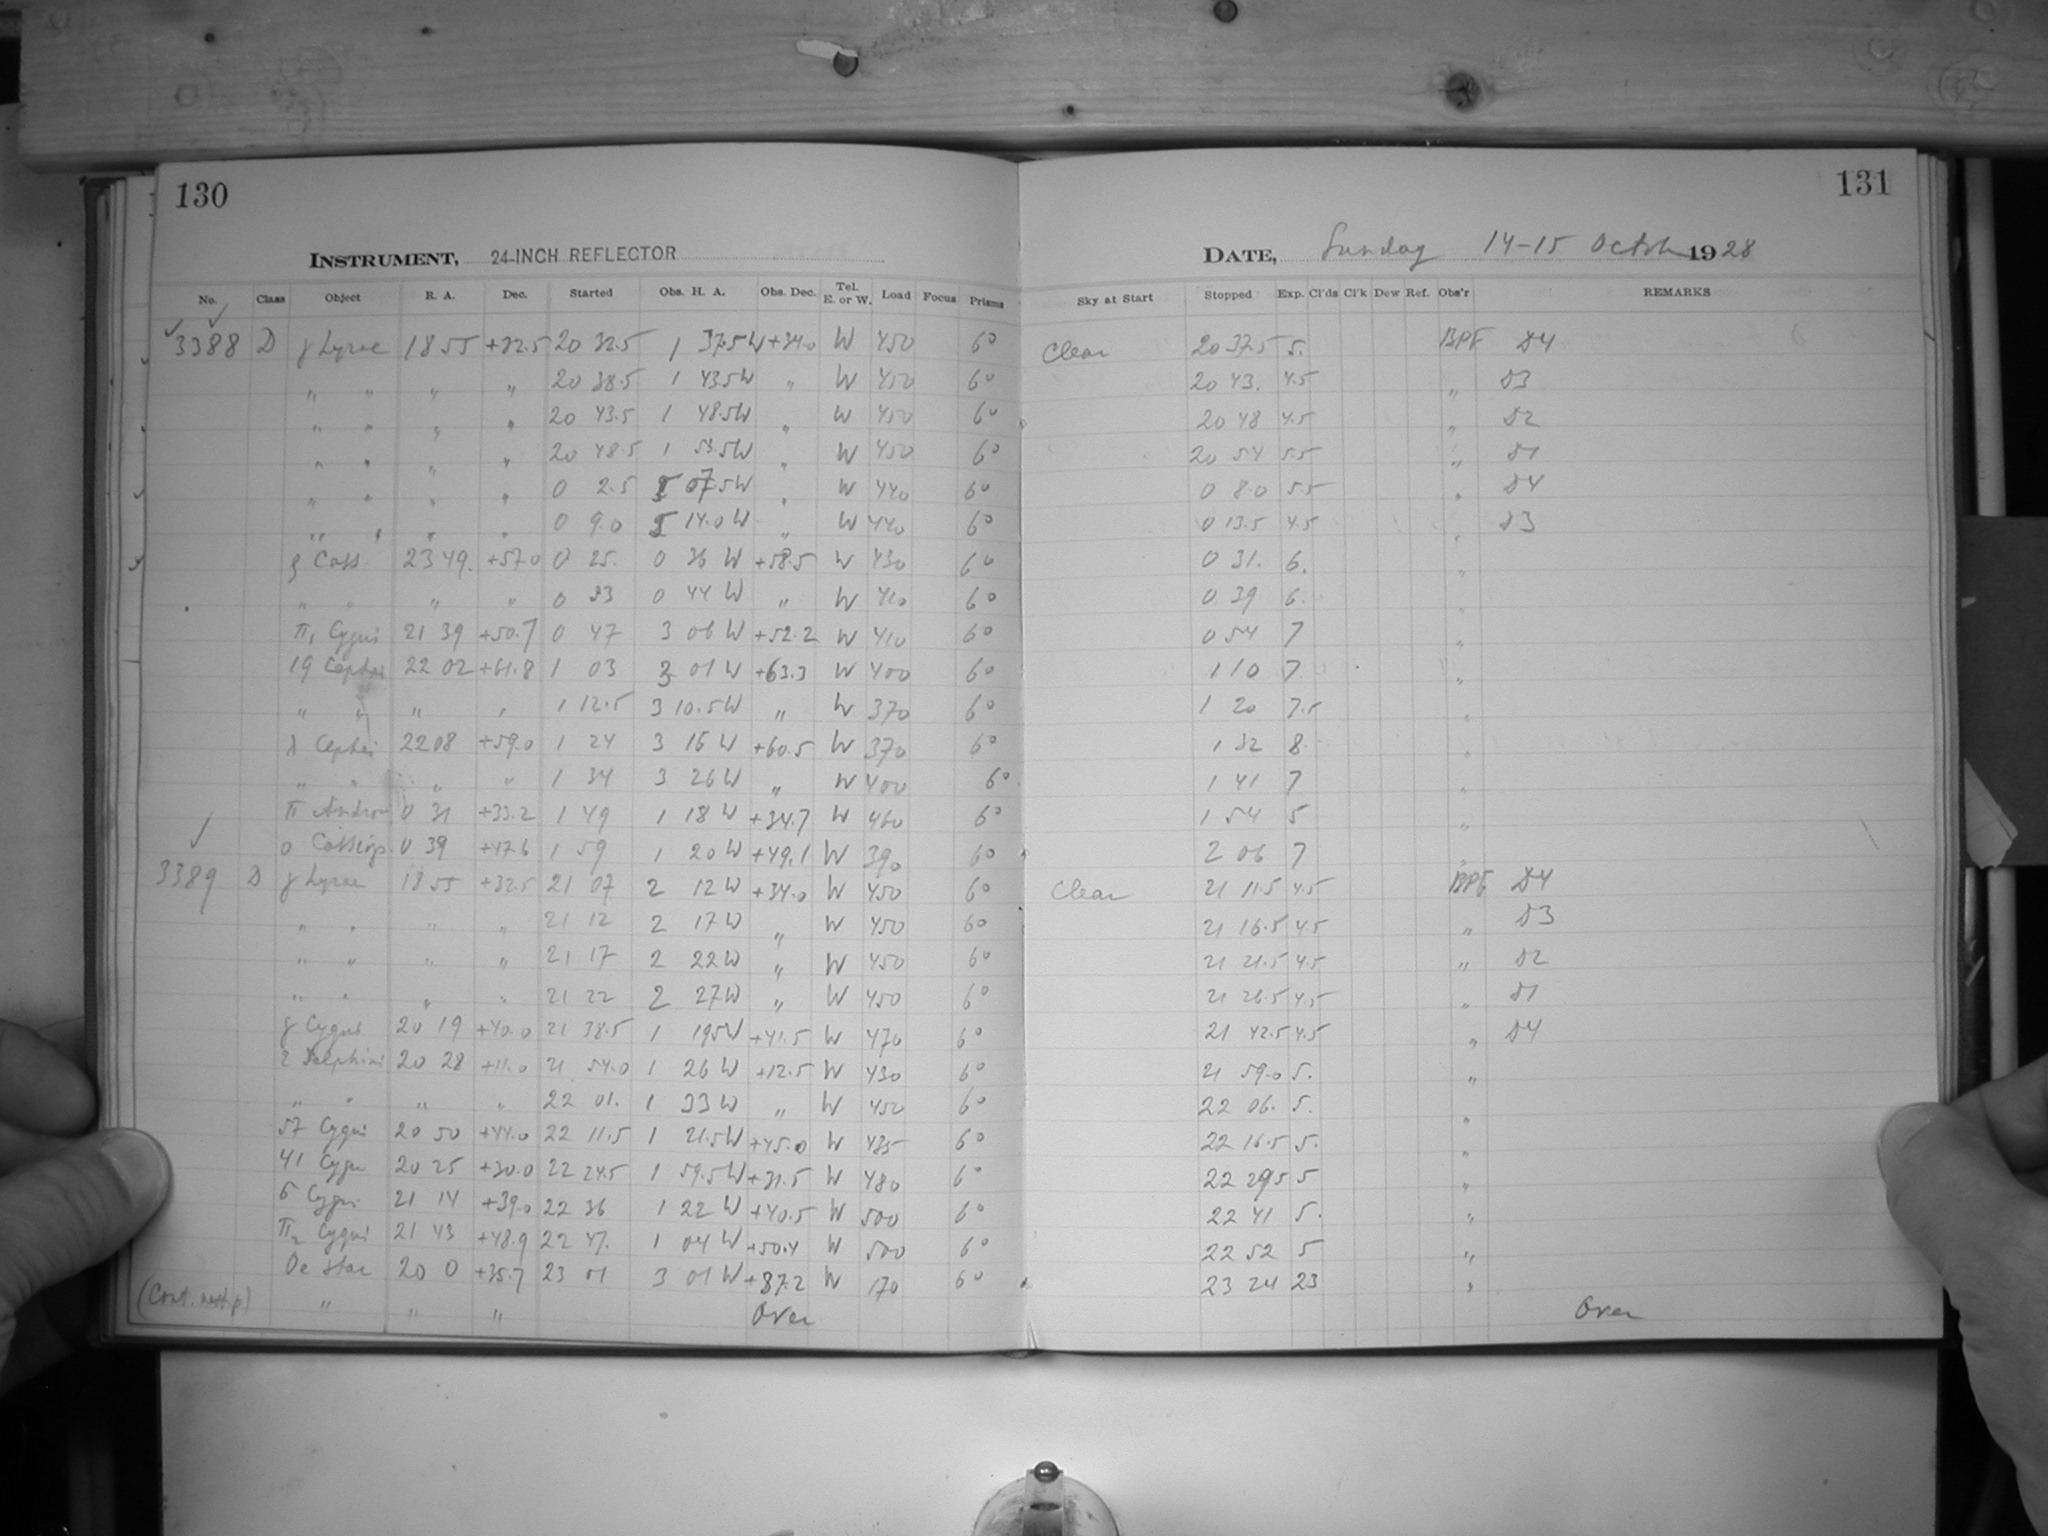 130
INSTRUMENT, 24-INCH REFLECTOR
No. Class Object R. A. Dec. Started Obs. H. A. Obs. Dec. Tel. E. or W. Load Focus Prisms
3388 D γ Lyrae 18 55 +32.5 20 32.5 1 37.5W +34.0 W 450 60
" " " " 20 38.5 1 43.5W " W 450 60
" " " " 20 43.5 1 48.5W " W 450 60
" " " " 20 48.5 1 53.5W " W 450 60
" " " " 0 2.5 5 07.5W " W 440 60
" " " " 0 9.0 5 14.0 W " W 440 60
Cass. 23 49. +57.0 0 25. 0 36 W +58.5 W 430 60
" " " " 0 33 0 44 W " W 410 60
π1 Cygni 21 39 +50.7 0 47 3 06 W +52.2 W 410 60
19 Cephei 22 02 +61.8 1 03 3 01 W +63.3 W 400 60
" " " " 1 12.5 3 10.5W " W 370 60
λ Cephei 22 08 +59.0 1 24 3 16 W +60.5 W 370 60
" " " " 1 34 3 26 W " W 400 60
π Androm 0 31 +33.2 1 49 1 18 W +34.7 W 460 60
o Cassiop 0 39 +47.6 1 59 1 20 W +49.1 W 390 60
3389 D γ Lyrae 18 55 +32.5 21 07 2 12 W +34.0 W 450 60
" " " " 21 12 2 17 W " W 450 60
" " " " 21 17 2 22 W " W 450 60
" " " " 21 22 2 27 W " W 450 60
γ Cygni 20 19 +40.0 21 38.5 1 19.5W +41.5 W 470 60
Delphini 20 28 +11.0 21 54.0 1 26 W +12.5 W 430 60
" " " " 22 01. 1 33 W " W 450 60
57 Cygni 20 50 +44.0 22 11.5 1 21.5W +45.0 W 435 60
41 Cygni 20 25 +30.0 22 24.5 1 59.5W +31.5 W 480 60
σ Cygni 21 14 +39.0 22 36 1 22 W +40.5 W 500 60
π2 Cygni 21 43 +48.9 22 47. 1 04 W +50.4 W 500 60
Oe Star 20 0 +35.7 23 01 3 01 W +37.2 W 170 60
(Cont. next p) " " " Over
131
DATE, Sunday 14-15 October 1928
Sky at Start Stopped Exp. Cl'ds Cl'k Dew Ref. Obs'r REMARKS
Clear 20 37.5 5. BPF D4
20 43. 4.5 " D3
20 48 4.5 " D2
20 54 5.5 " D1
0 8.0 5.5 " D4
0 13.5 4.5 " D3
0 31. 6. "
0 39 6. "
0 54 7 "
1 10 7 "
1 20 7.5 "
1 32 8. "
1 41 7 "
1 54 5 "
2 06 7 "
Clear 21 11.5 4.5 BPF D4
21 16.5 4.5 " D3
21 21.5 4.5 " D2
21 26.5 4.5 " D1
21 42.5 4.5 " D4
21 59.0 5. "
22 06. 5. "
22 16.5 5. "
22 29.5 5 "
22 41 5. "
22 52 5 "
23 24 23 "
Over